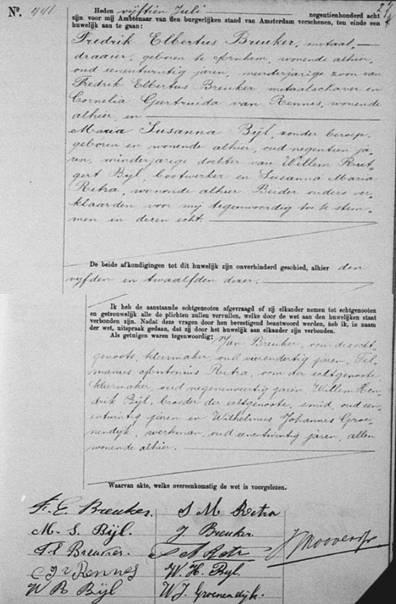 Nº. 441
Heden vijftien Juli negentienhonderd acht
zijn voor mij Ambtenaar van den burgerlijken stand van Amsterdam verschenen, ten einde een
huwelijk aan te gaan:
Fredrik Elbertus Breuker, metaal-
draaier, geboren te Arnhem, wonende alhier,
oud eenentwintig jaren, meerderjarige zoon van
Fredrik Elbertus Breuker metaalschaver en
Cornelia Geertruida van Rennes, wonende
alhier, en
Maria Susanna Bijl, zonder beroep,
geboren en wonende alhier, oud negentien ja-
ren, minderjarige dochter van Willem Rut-
gert Bijl, bootwerker en Susanna Maria
Retra, wonende alhier Beider ouders ver-
klaarden voor mij tegenwoordig toe te stem-
men in deren echt.
De beide afkondigingen tot dit huwelijk zijn onverhinderd geschied, alhier den
vijfden en twaalfden dezer.
Ik heb de aanstaande echtgenooten afgevraagd of zij elkander nemen tot echtgenooten
en getrouwelijk alle de plichten zullen vervullen, welke door de wet aan den huwelijken staat
verbonden zijn. Nadat deze vragen door hen bevestigend beantwoord werden, heb ik, in naam
der wet, uitspraak gedaan, dat zij door het huwelijk aan elkander zijn verbonden.
Als getuigen waren tegenwoordig: Jan Breuker, oom der echt-
genoote, kleermaker, oud jaren,
Retra, oom der echtgenoote,
kleermaker, oud negenenveertig jaren Willem Hen-
drik Bijl, broeder der echtgenoote, smid, oud een-
entwintig jaren en Wilhelmus Johannes Groe-
nendijk, werkman, oud eenentwintig jaren, allen
wonende alhier.
Waarvan akte, welke overeenkomstig de wet is voorgelezen.
F. E. Breuker S M Retra
M. S. Bijl J Breuker
F E Breuker Retra
C G v Rennes W. H. Bijl
W R Bijl W J Groenendijk